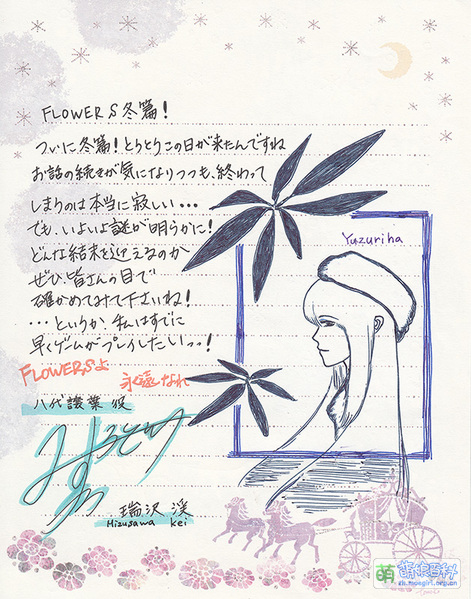 FLOWERS冬篇!
ついに冬篇!とうとうこの日が来たんですね
お話の続きが気になりつつも、終わって
しまうのは本当に寂しい…
でも、いよいよ謎が明らかに!
どんな結末を迎えるのか
ぜひ皆さんの目で
確かめてみて下さいね!
…というか、私はすでに
早くゲームがプレイしたいっっ!
FLOWERSよ
永遠なれ
八代譲葉 役
みずさわけい
瑞沢 渓
Mizusawa Kei
Yuzuriha
萌 萌娘百科
zh.moegirl.org.cn